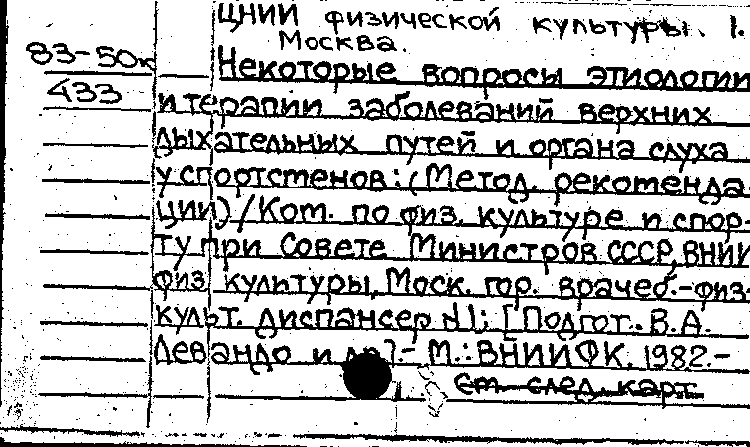 ЦНИИ физической культуры. 1.
Москва.
83-50к
433
Некоторые вопросы этиологии
и терапии заболеваний верхних
дыхательных путей и органа слуха
у спортстенов: (Метод. рекотенда-
ции) / Кот. по физ. культуре и спор-
ту при Совете Министров СССР, ВНИИ
физ. культуры, Моск. гор. врачеб.-физ-
культ. диспансер №1; [Подгот. В.А.
Левандо и др]. - М.: ВНИИФК, 1982.-
См. след. карт.